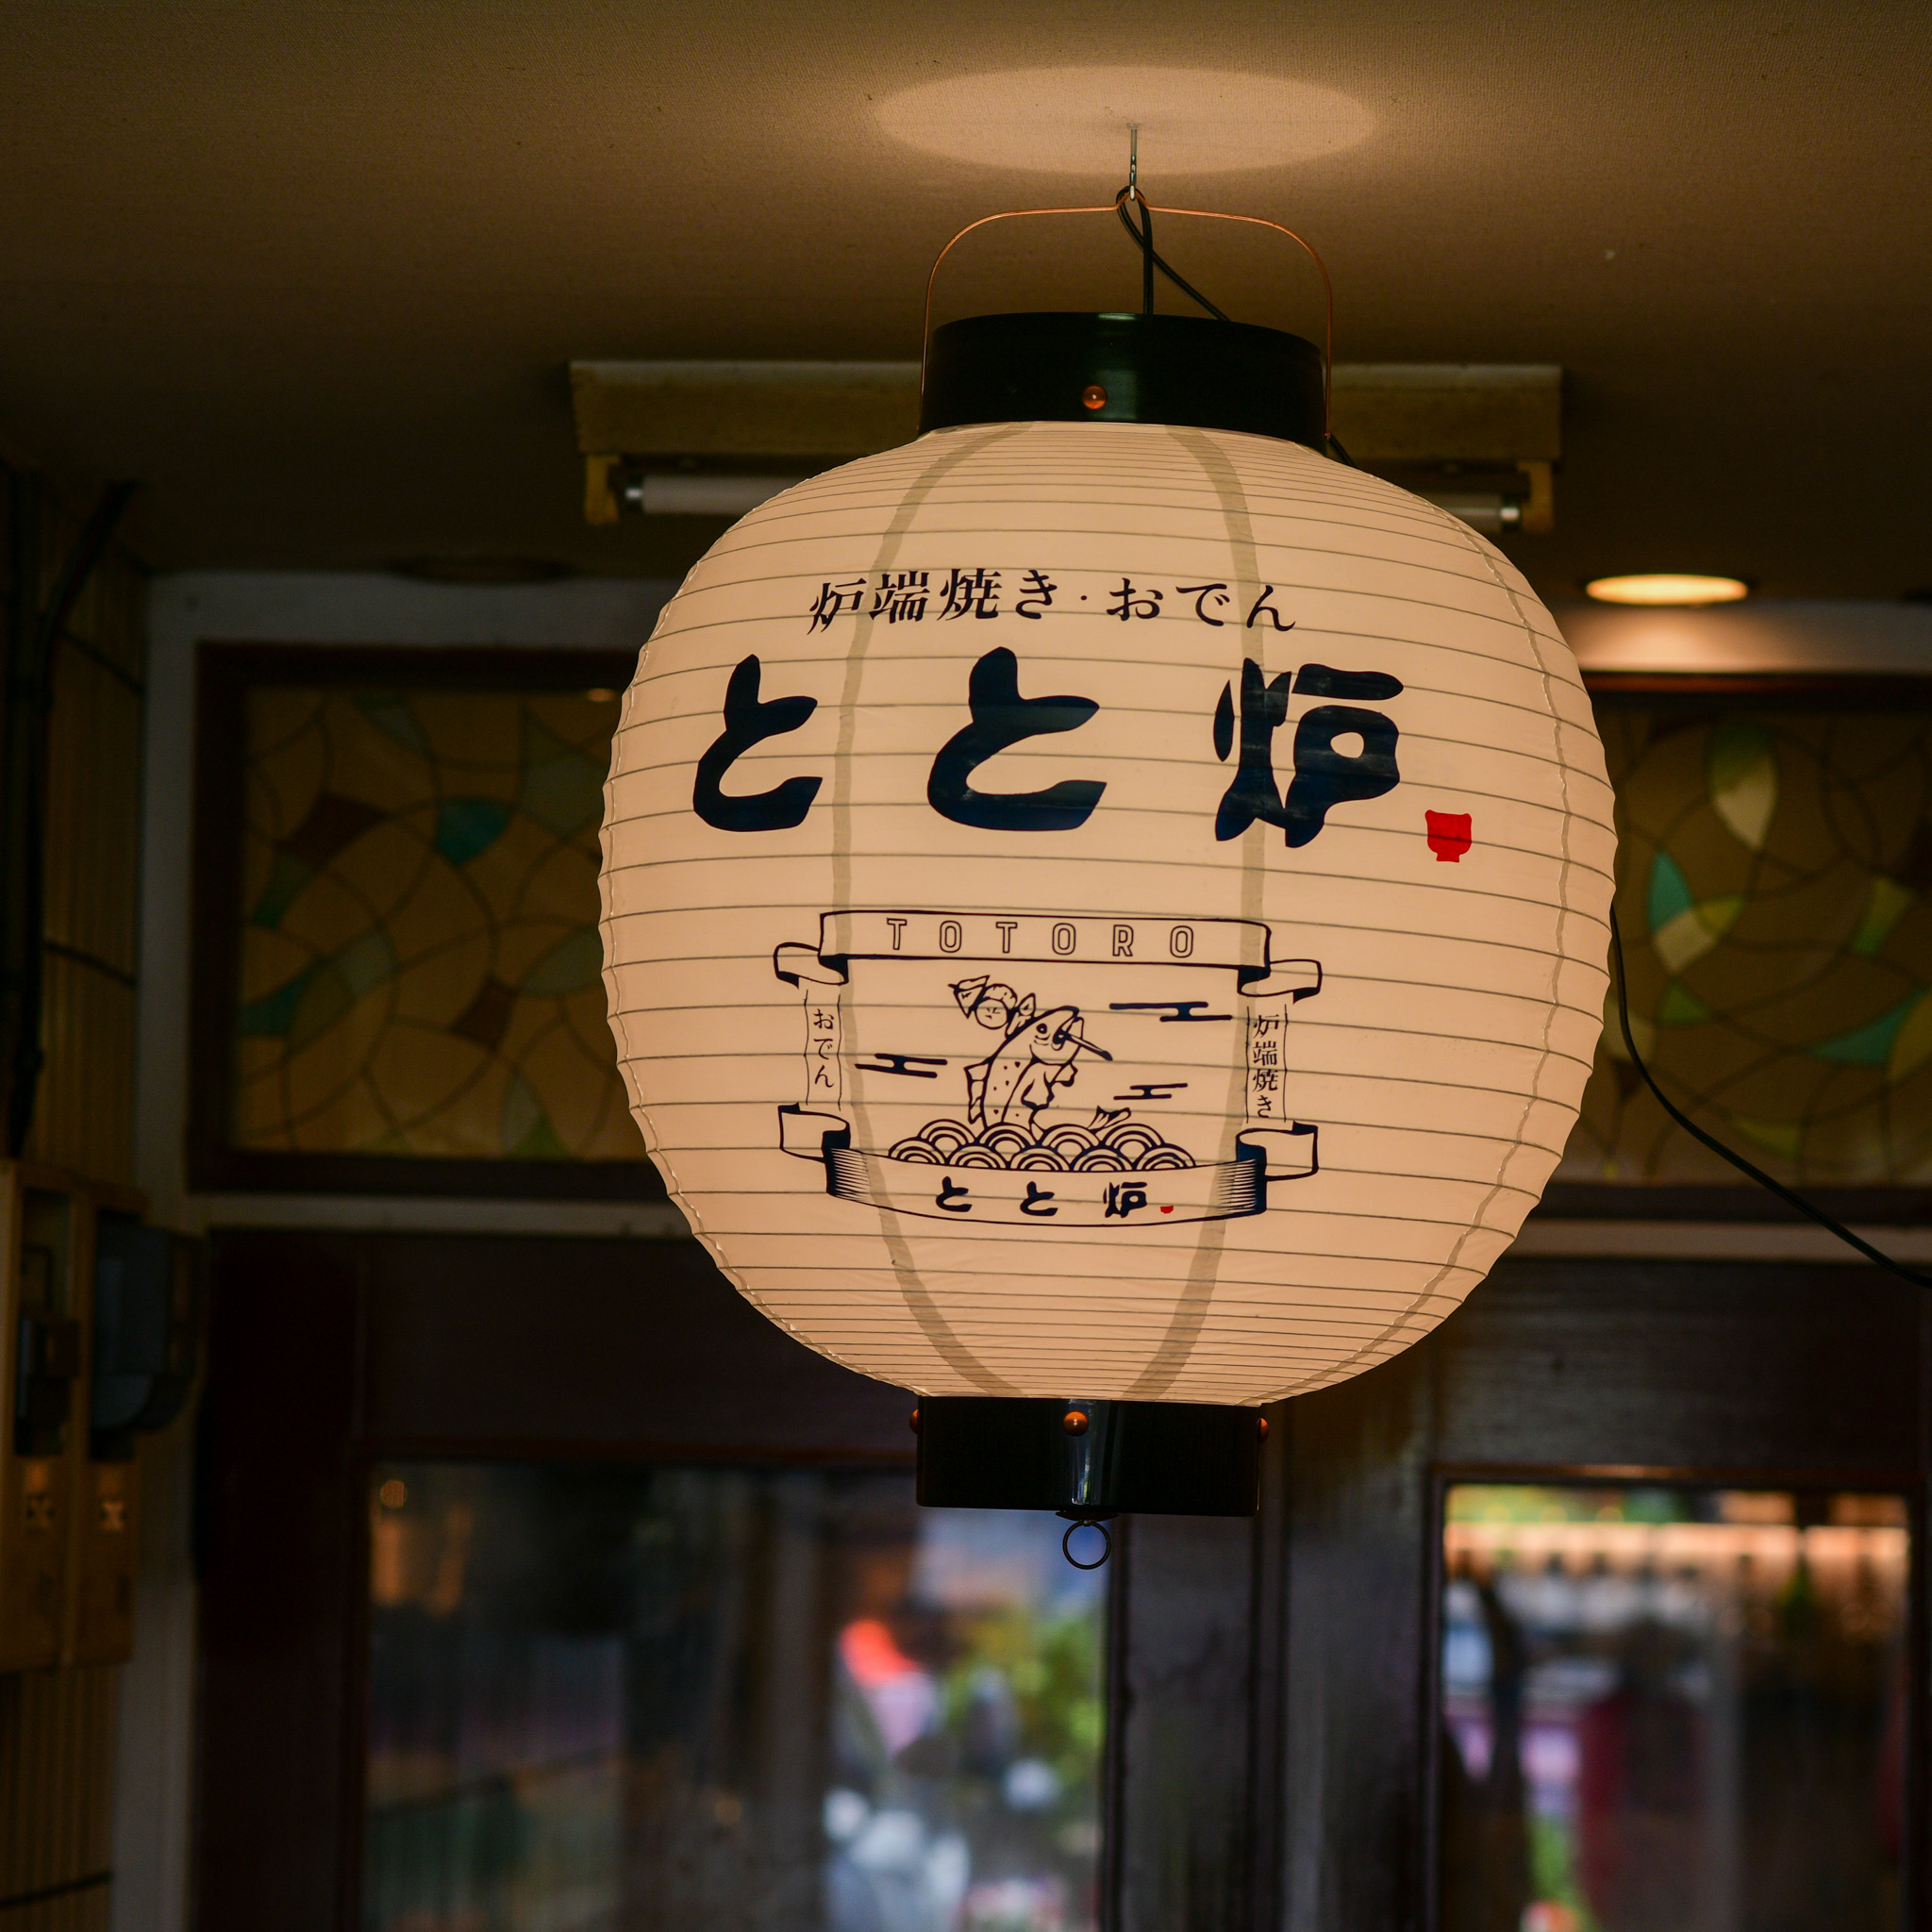 炉端焼き・おでん
とと炉
TOTORO
おでん
炉端焼き
とと炉